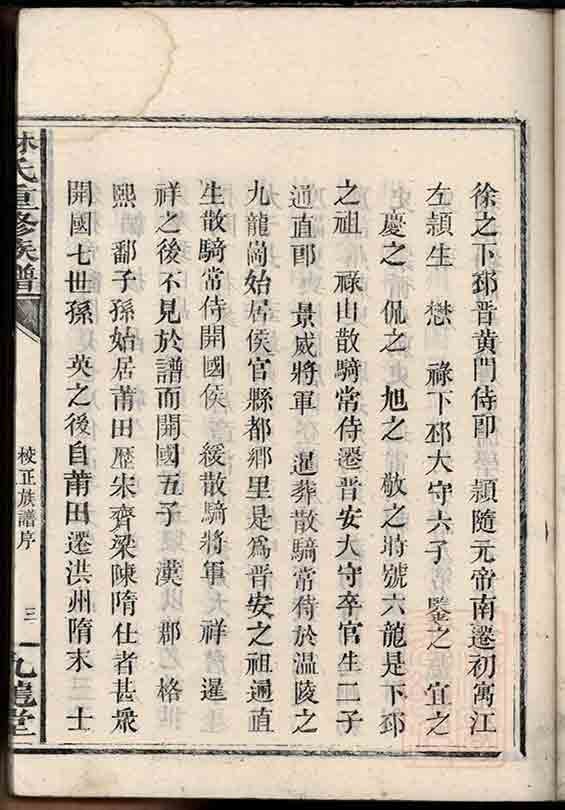 徐之下邳晉黃門侍郎 顈隨元帝南遷初寓江
左顈生 懋 祿下邳大守六子 鑒之 宜之
慶之 侃之 旭之 敬之時號六龍是下邳
之祖 祿由散騎常侍遷晉安大守卒官生二子
通直郎 景威將軍 暹葬散騎常侍於温陵之
九龍崗始居侯官縣都鄉里是爲晉安之祖通直
生散騎常侍開國侯 綏散騎將軍 祥 暹
祥之後不見於譜而開國五子 漢 郡 格
熙 鄱子孫始居莆田歷宋齊梁陳隋仕者甚衆
開國七世孫 英之後自莆田遷洪州隋末 士
林氏重修族譜
校正族譜序
三
九龍堂